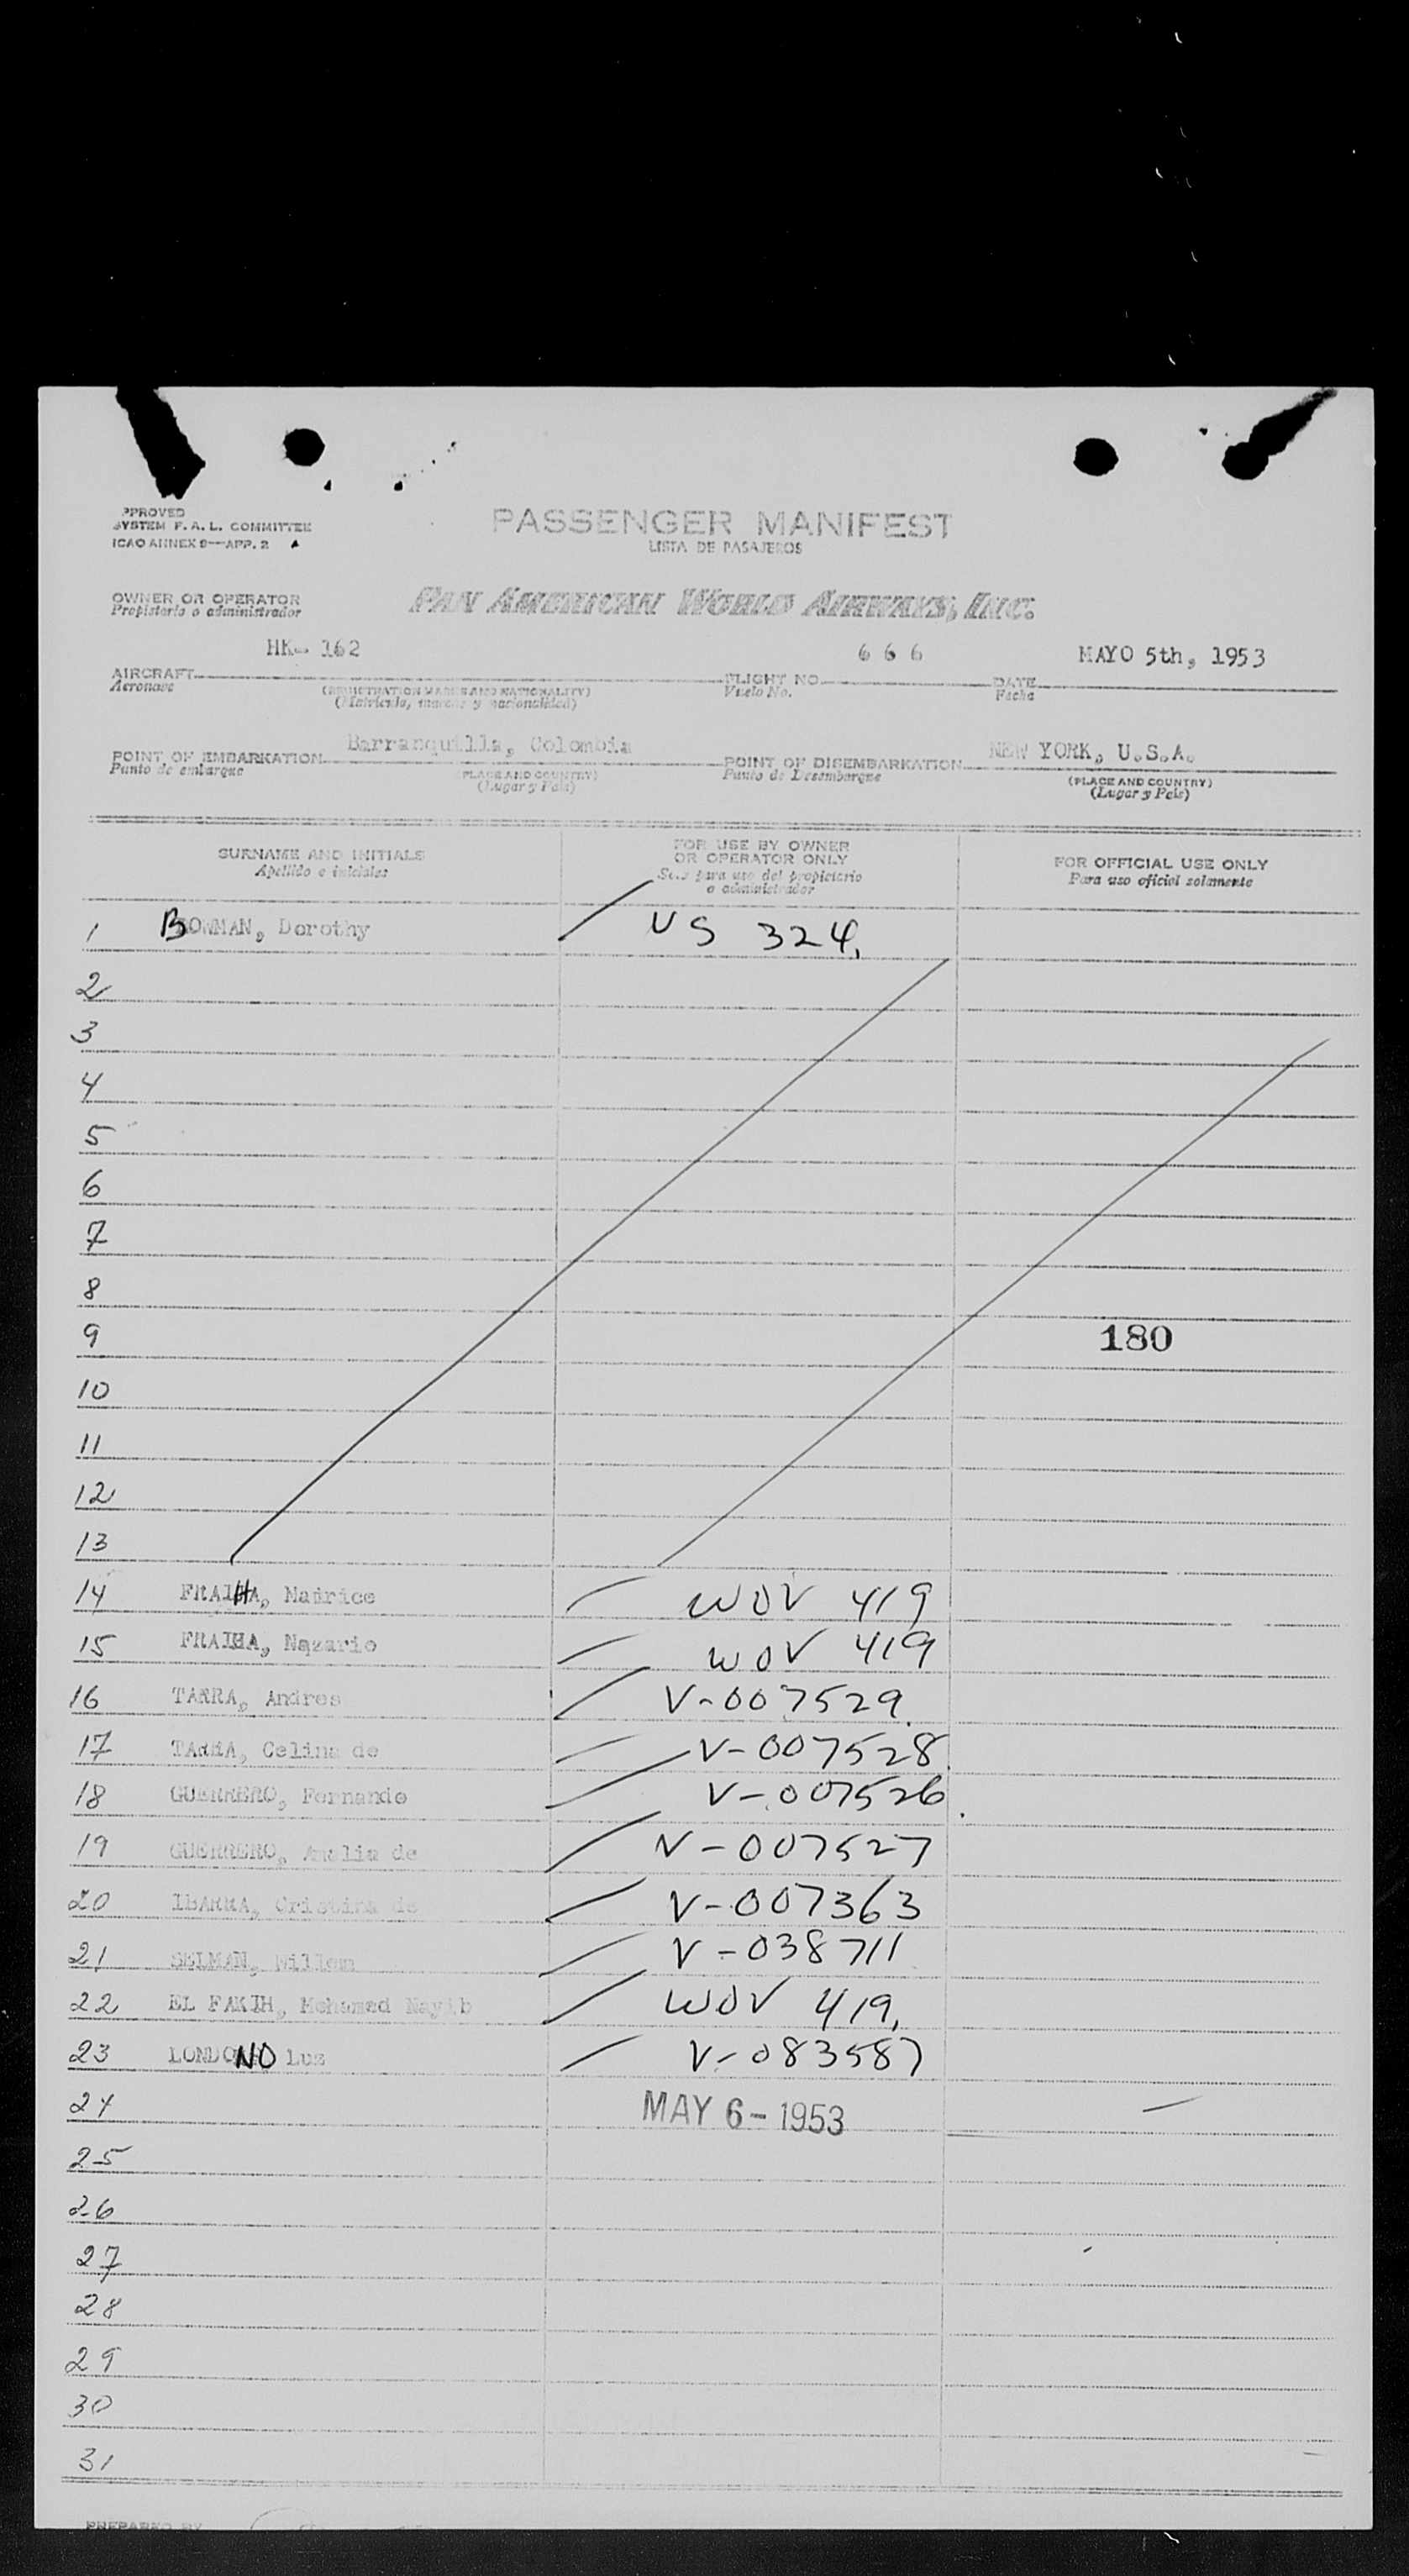 PPROVED
SYSTEM F. A. L. COMMITTEE
ICAO ANNEX 9—APP. 2
PASSENGER MANIFEST
LISTA DE PASAJEROS
OWNER OR OPERATOR
Propietario o administrador
PAN AMERICAN WORLD AIRWAYS, INC.
HK- 162
6 6 6
MAYO 5th, 1953
AIRCRAFT
FLIGHT NO.
DATE
Aeronave
(REGISTRATION MARKS AND NATIONALITY)
Vuelo No.
Fecha
(Matricula, marcas y nacionalidad)
Barranquilla, Colombia
NEW YORK, U.S.A.
POINT OF EMBARKATION
POINT OF DISEMBARKATION
Punto de embarque
(PLACE AND COUNTRY)
Punto de Desembarque
(PLACE AND COUNTRY)
(Lugar y Pais)
(Lugar y Pais)
SURNAME AND INITIALS
Apellido e iniciales
FOR USE BY OWNER
OR OPERATOR ONLY
Solo para uso del propietario
o administrador
FOR OFFICIAL USE ONLY
Para uso oficial solamente
1 BOWMAN, Dorothy US 324.
2
3
4
5
6
7
8
9 180
10
11
12
13
14 FRAIHA, Matrice WOV 419
15 FRAIHA, Nazario WOV 419
16 TARRA, Andres V-007529
17 TARRA, Celina de V-007528
18 GUERRERO, Fernando V-007526
19 GUERRERO, Amalia de V-007527
20 IBARRA, Cristina de V-007363
21 SELMAN, V-038711
22 EL FAKIH, Mohamad Nayib WOV 419.
23 LONDONO Luz V-083587
24 MAY 6-1953
25
26
27
28
29
30
31
PREPARED BY